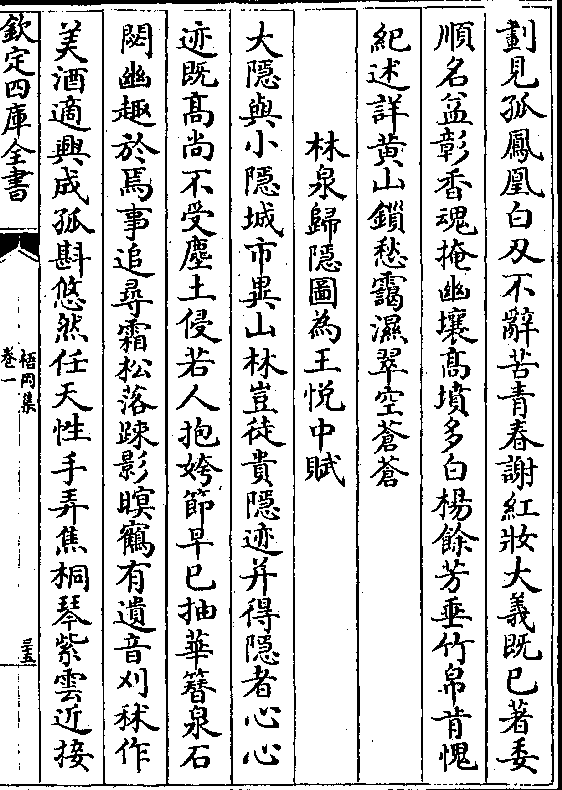 劃見孤鳳凰白刄不辭苦青春謝紅妝大義既已著委
順名益彰香魂掩幽壤髙墳多白楊餘芳垂竹帛肯愧
紀述詳黄山鎖愁靄濕翠空蒼蒼
林泉歸隱圖為王悦中賦
大隱與小隱城市異山林豈徒貴隱迹并得隱者心心
迹既髙尚不受塵土侵若人抱姱節早已抽華簮泉石
閟幽趣於焉事追尋霜松落踈影暝鶴有遺音刈秫作
美酒適興成孤斟悠然任天性手弄焦桐琴紫雲近接
欽定四庫全書
梧岡集
卷一
三五